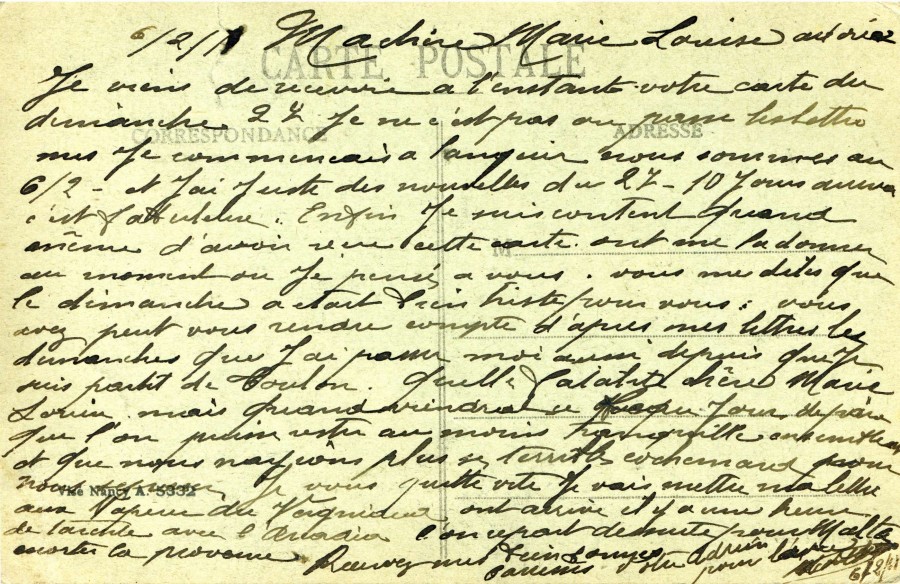 6/2/18 Ma chère Marie Louise adorée
CARTE POSTALE
Je viens de recevoir a l'instant votre carte du
dimanche 27 Je ne c'est pas ou passe les lettre
CORRESPONDANCE
ADRESSE
mes Je commencais a languir nous sommes au
6/2 - et J'ai Juste des nouvelles du 27 - 10 Jours
c'est fabuleux. Enfin Je suis content quand
même d'avoir reçu cette carte. ont me la donner
M
au moment ou Je pensé a vous. vous me dites que
le dimanche a était bien triste pour vous: vous
avez peut vous rendre compte d'apres mes lettres les
dimanches que J'ai passer moi aussi depuis que Je
suis partit de Toulon. Quelle fatalité chère Marie
Louise mais quand viendra se Jour de paix
que l'on puisse rester au moins tranquille ensemble
et que nous n'ayions plus se terrible cochemard pour
nous Je vous quitte vite Je vais mettre ma lettre
Visé Nancy A. 5332
aux Vapeur du ont arrive il y a une heure
de tarente avec l' l'on repart de suite pour Malte
escorter la provence Recevez mes bien douces
caresses Votre pour la vie
6/2/18